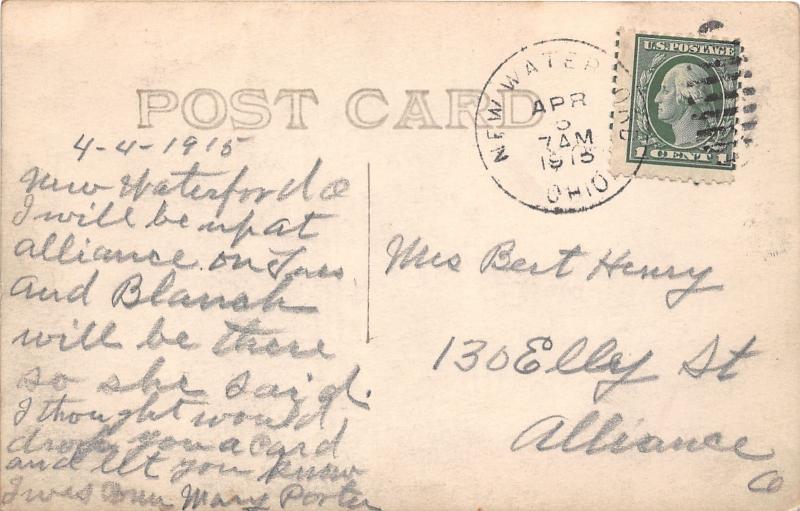 POST CARD
NEW WATERFORD
APR
5
7AM
1915
OHIO
U.S. POSTAGE
1 CENT 1
4-4-1915
New Waterford O
I will be up at
alliance on Tues
and Blanch
will be there
so she said.
I thought would
drop you a card
and let you know
Mary Porter
Mrs Bert Henry
130 Elly St
Alliance
O